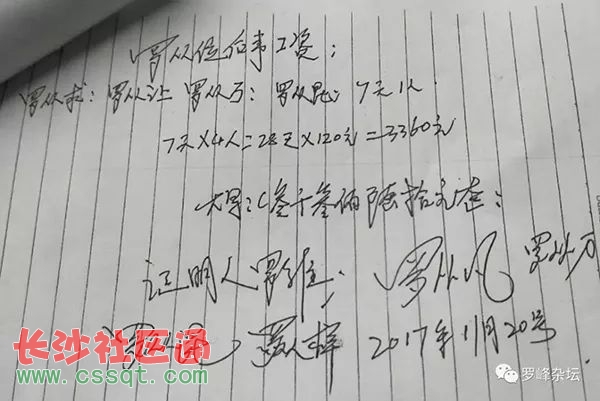 罗从位位事工资:
罗从求: 罗从让 罗从万: 罗从昆: 7天1人
7天×4人=28天×120元=3360元
大写:(叁千叁佰陆拾元整:
证明人罗维: 罗从凡 罗从万
罗从 罗从辉 2017年11月20号
长沙社区通
www.cssqt.com
罗峰杂坛